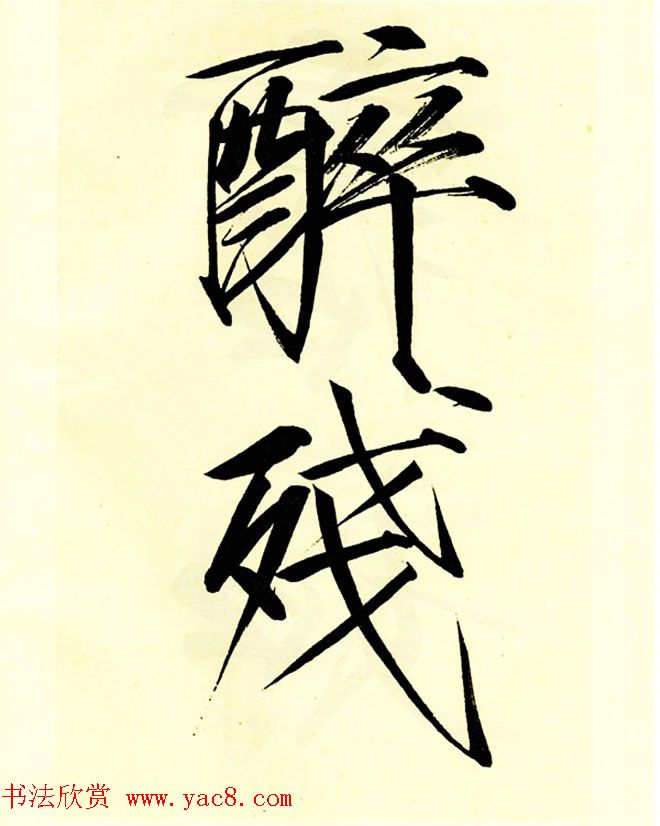 醉
殘
书法欣赏 www.yac8.com